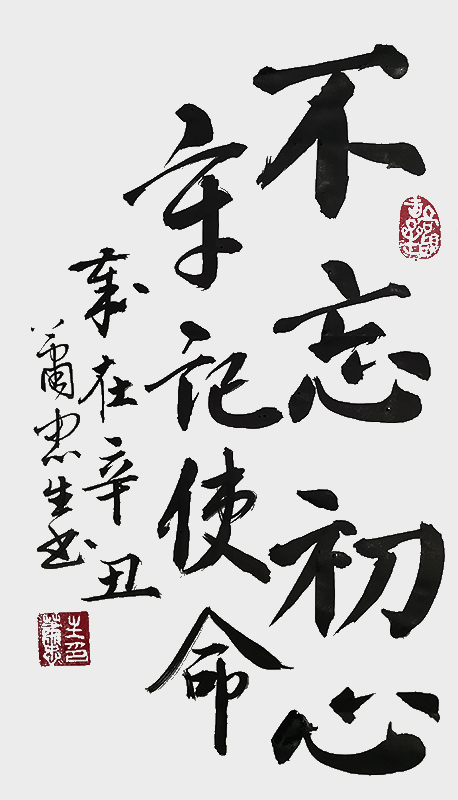 不忘初心
牢记使命
歲在辛丑
蕭忠生書